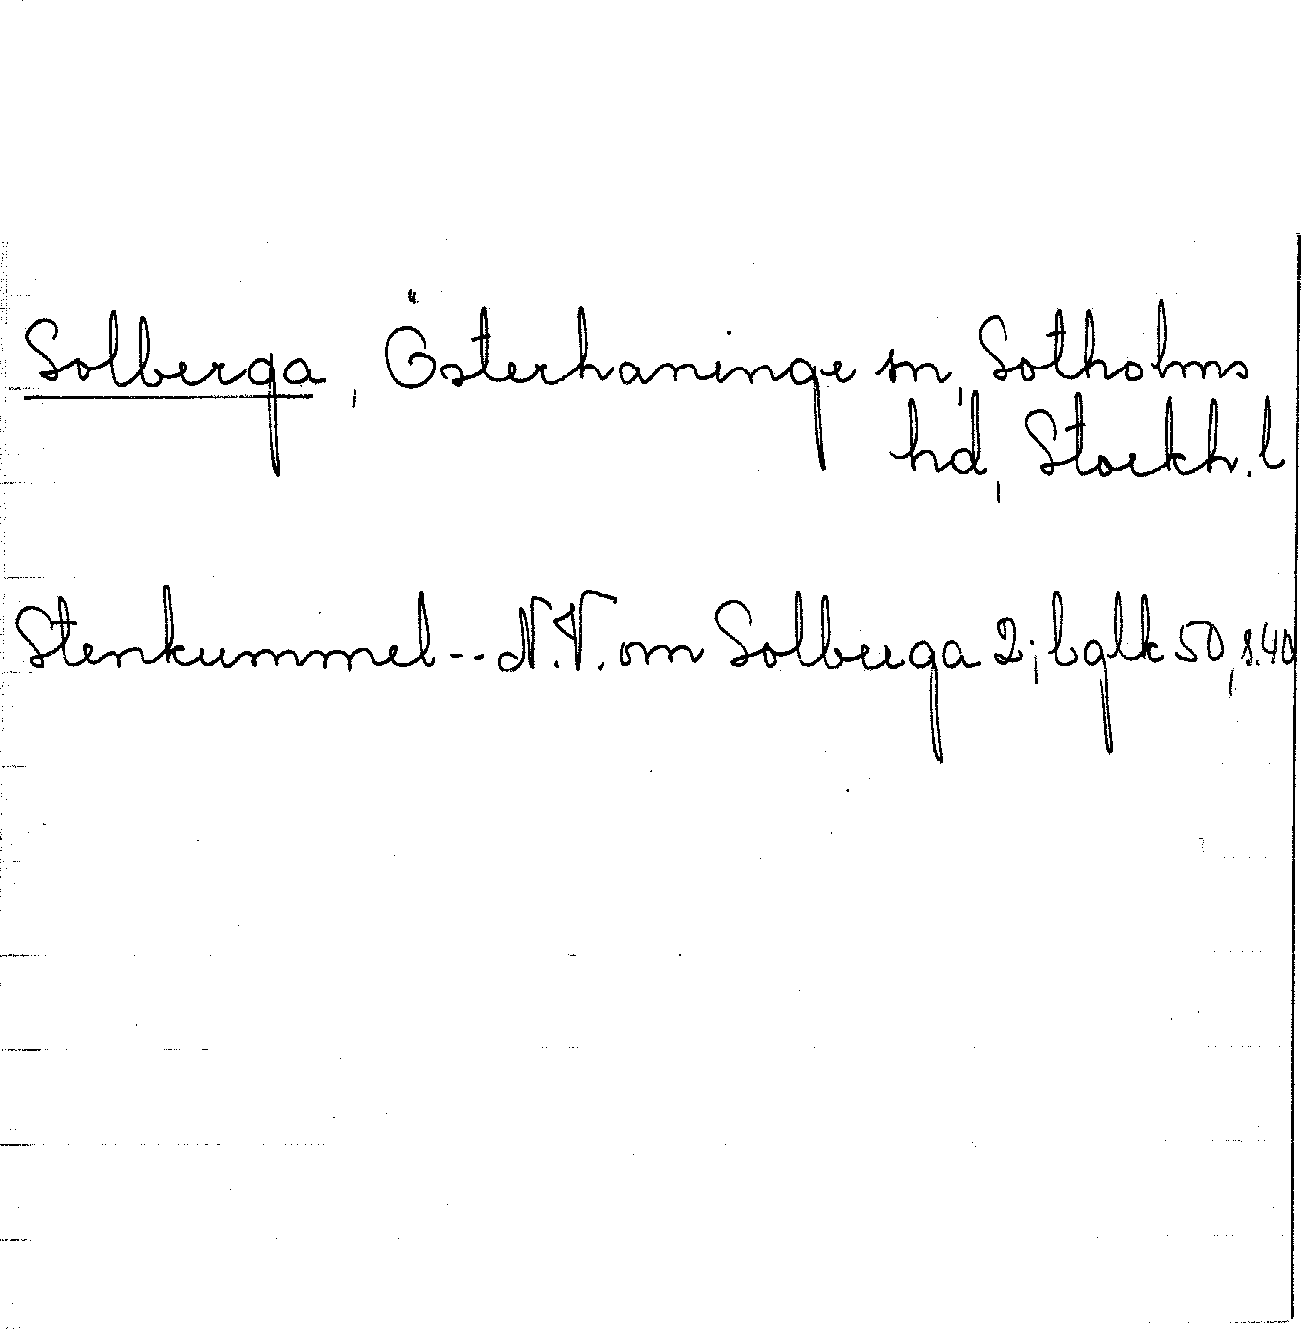 Solberga, Österhaninge sn, Sotholms
hd, Stockh. l
Stenkummel -- N.V. om Solberga 2; bglk 50, s. 40